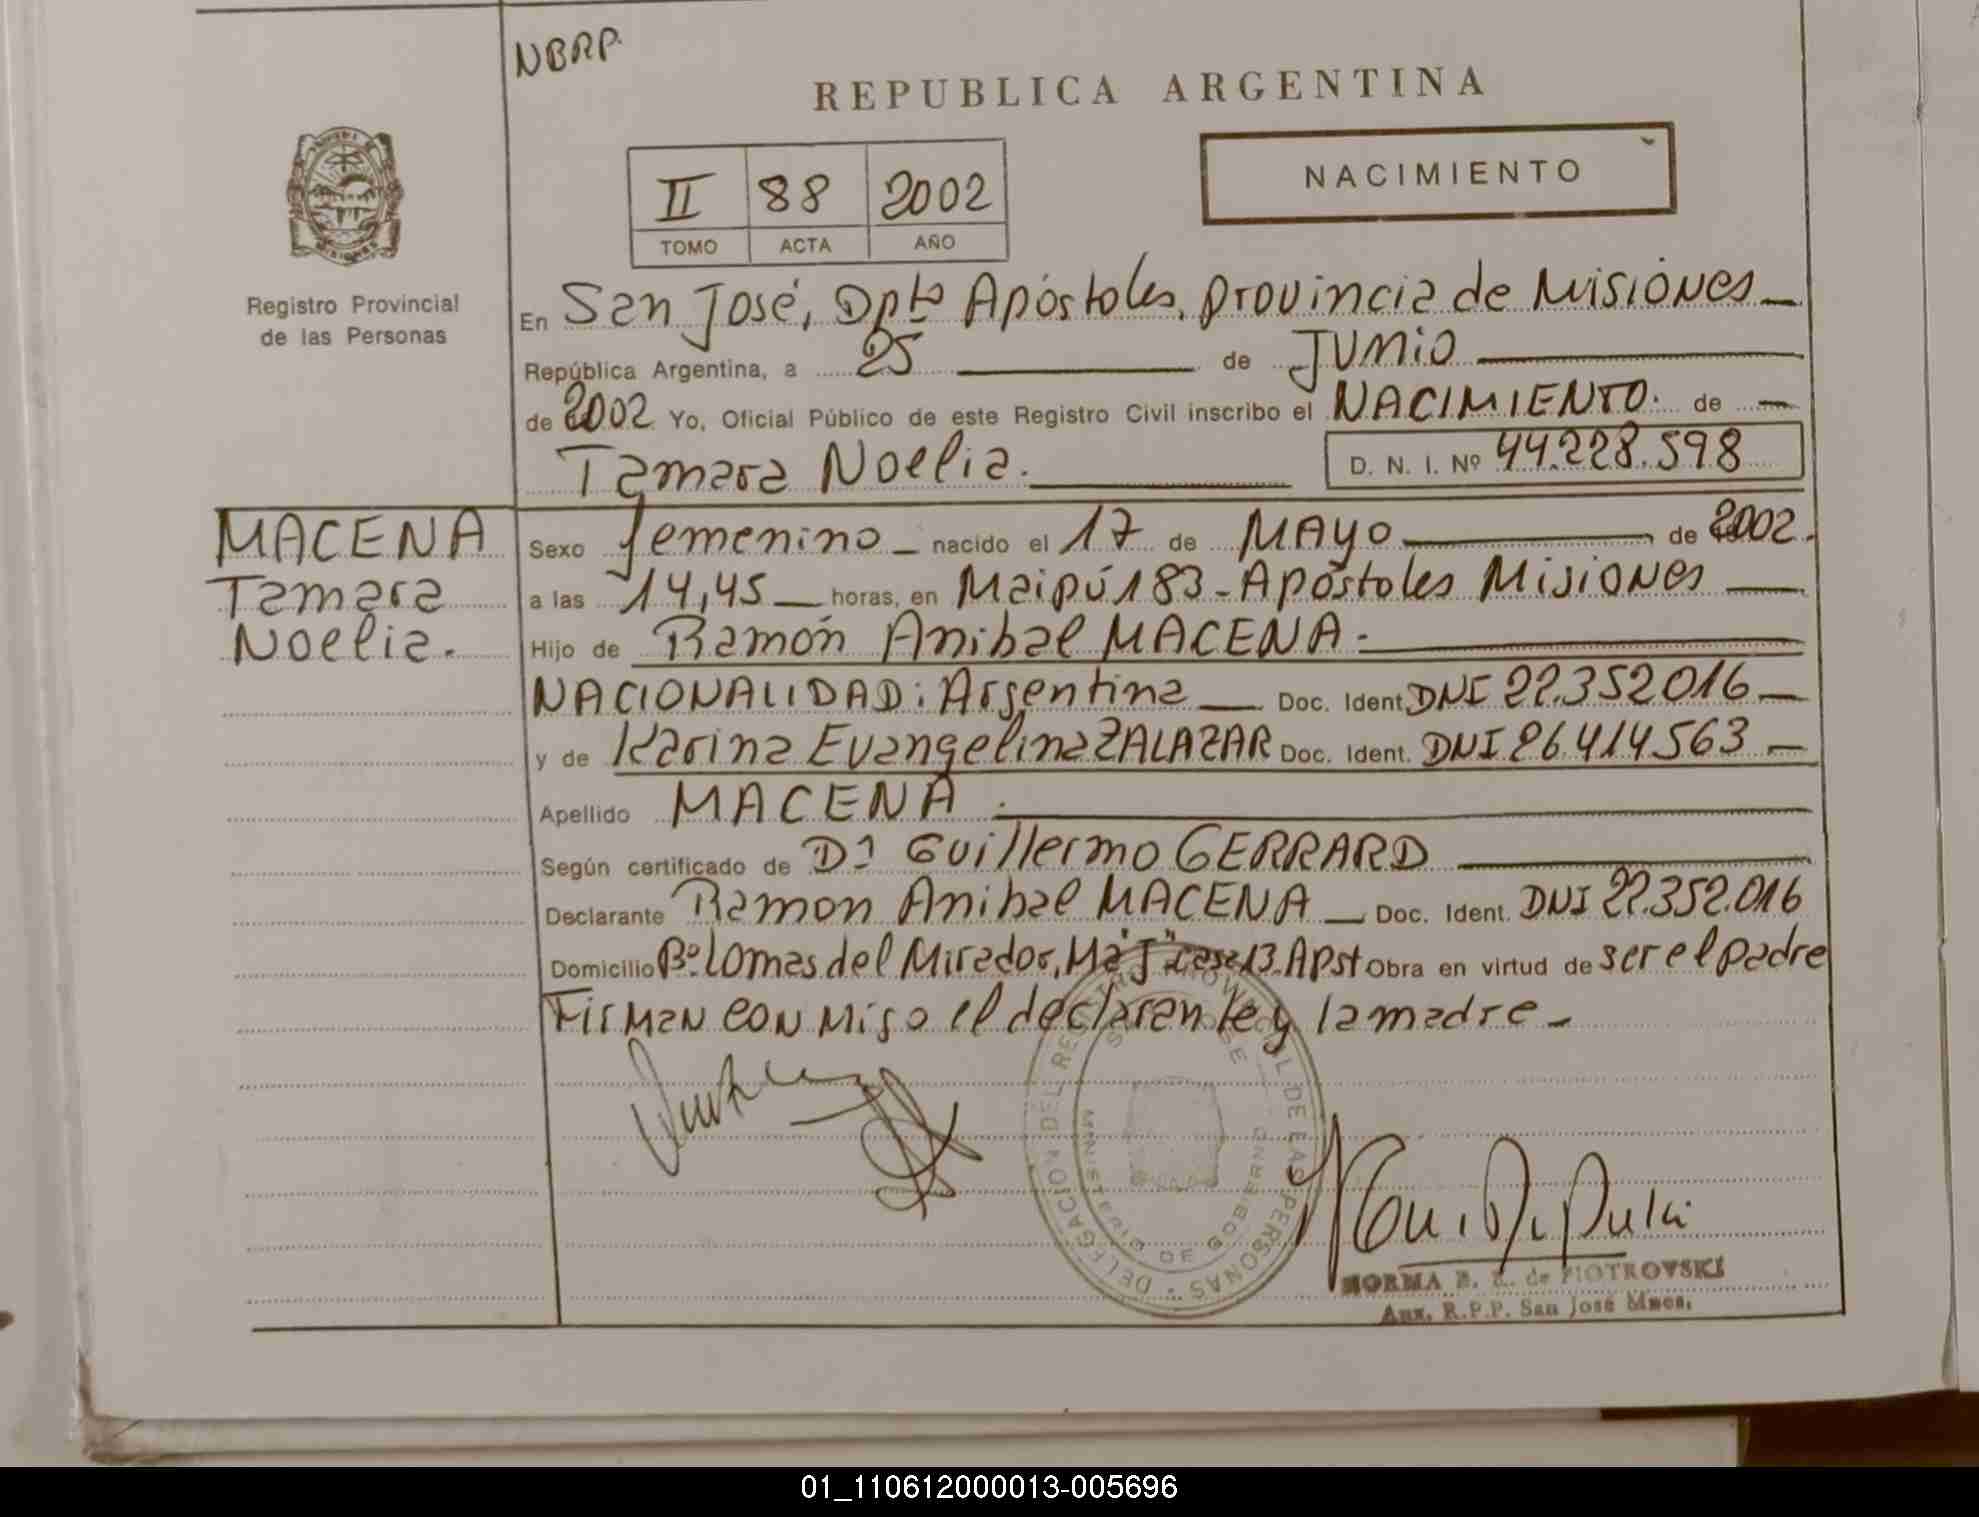 NBRP.
REPUBLICA ARGENTINA
NACIMIENTO
II 88 2002
TOMO ACTA AÑO
Registro Provincial
de las Personas
En San José, Dpto Apóstoles, provincia de Misiones
República Argentina, a 25 de Junio
de 2002 Yo, Oficial Público de este Registro Civil inscribo el NACIMIENTO. de
Tamara Noelia. D. N. I. Nº 44.228.598
MACENA
Tamara
Noelia.
Sexo femenino nacido el 17 de MAYO de 2002.
a las 14,45 horas, en Maipú 183 - Apóstoles Misiones
Hijo de Ramón Anibal MACENA.
NACIONALIDAD: Argentina Doc. Ident. DNI 22.352016
y de Karina Evangelina ZALAZAR Doc. Ident. DNI 26.414563
Apellido MACENA.
Según certificado de Dr Guillermo GERRARD
Declarante Ramon Anibal MACENA Doc. Ident. DNI 22.352.016
Domicilio Bº Lomas del Mirador, Mz "J" casa 13. Apst Obra en virtud de ser el padre
Firman conmigo el declarante y la madre.
DELEGACION DEL REGISTRO PROVINCIAL DE LAS PERSONAS
SAN JOSE
MINISTERIO DE GOBIERNO
NORMA B. R. de PIOTROVSKI
Aux. R.P.P. San José Mnes.
01_110612000013-005696